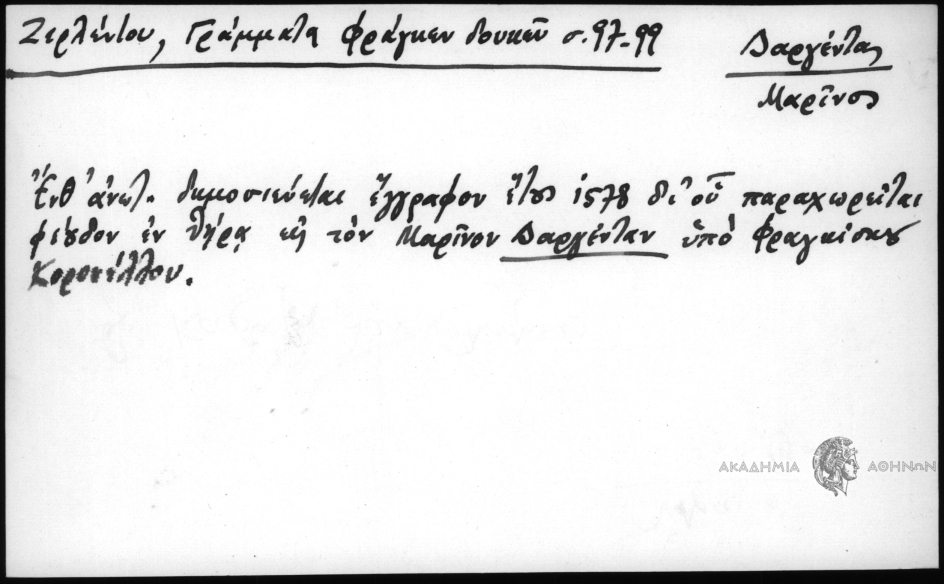 Ζερλέντου, Γράμματα Φράγκων δουκῶν σ. 97-99
Δαργέντας
Μαρῖνος
Ἔνθ' ἀνωτ. δημοσιεύεται ἔγγραφον ἔτους 1578 δι' οὗ παραχωρεῖται
φέουδον ἐν Θήρᾳ εἰς τὸν Μαρῖνον Δαργένταν ὑπὸ Φραγκίσκου
Κορονέλλου.
ΑΚΑΔΗΜΙΑ ΑΘΗΝΩΝ